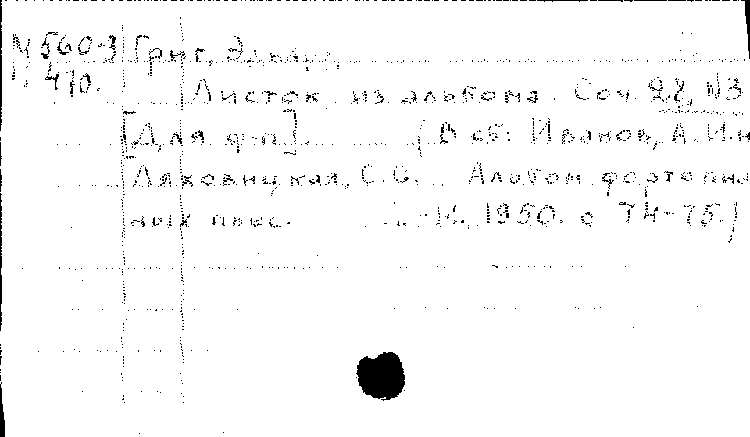 М 560-3 Григ, Эдвард.
470.
Листок из альбома. Соч. 28, №3
[Для ф-п] (В сб: Иванов, А. И. и
Ляховицкая, С. С. Альбом фортепиа
ных пьес. 1950. с 74-75.)